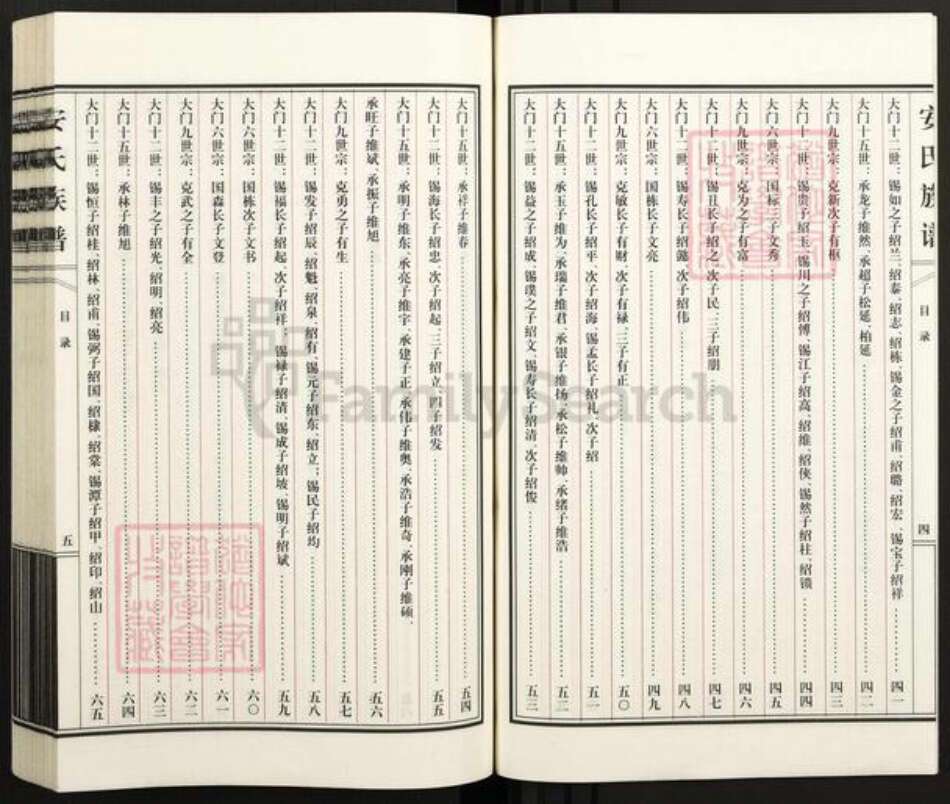 安氏族谱
目录
四
大门十二世：锡如之子绍兰、绍泰、绍志、绍栋、锡金之子绍甫、绍璐、绍宏、锡宝子绍祥……四一
大门十五世：承龙子维然、承超子松延、柏延……四二
大门九世宗：克新次子有枢……四三
大门十一世：锡贵子绍玉、锡川之子绍博、锡江子绍高、绍维、绍侠、锡然子绍柱、绍锁……四四
大门六世宗：国标三子文秀……四五
大门九世宗：克为之子有富……四六
大门十一世：锡且长子绍之、次子民、三子绍朋……四七
大门十二世：锡寿长子绍懿、次子绍伟……四八
大门六世宗：国栋长子文亮……四九
大门九世宗：克敏长子有财、次子有禄、三子有正……五〇
大门十二世：锡孔长子绍平、次子绍海、锡孟长子绍礼、次子绍……五一
大门十五世：承玉子维为、承瑞子维君、承银子维扬、承松子维帅、承绪子维浩……五二
大门十二世：锡益之子绍成、锡璞之子绍文、锡寿长子绍清、次子绍俊……五三
大门十五世：承祥子维春……五四
大门十二世：锡海长子绍忠、次子绍起、三子绍立、四子绍发……五五
大门十五世：承明子维东、承亮子维宇、承建子正、承伟子维奥、承浩子维奇、承刚子维硕、
承旺子维斌、承振子维旭……五六
大门九世宗：克勇之子有生……五七
大门十二世：锡发子绍辰、绍魁、绍泉、绍有、锡元子绍东、绍立；锡民子绍均……五八
大门十二世：锡福长子绍起、次子绍祥、锡禄子绍清、锡成子绍坡、锡明子绍斌……五九
大门六世宗：国栋次子文书……六〇
大门六世宗：国森长子文登……六一
大门九世宗：克武之子有全……六二
大门十二世：锡丰之子绍光、绍明、绍亮……六三
大门十五世：承林子维旭……六四
大门十二世：锡恒子绍桂、绍林、绍甫、锡弼子绍国、绍棣、绍棠、锡潭子绍甲、绍印、绍山……六五
安氏族谱
目录
五
FamilySearch